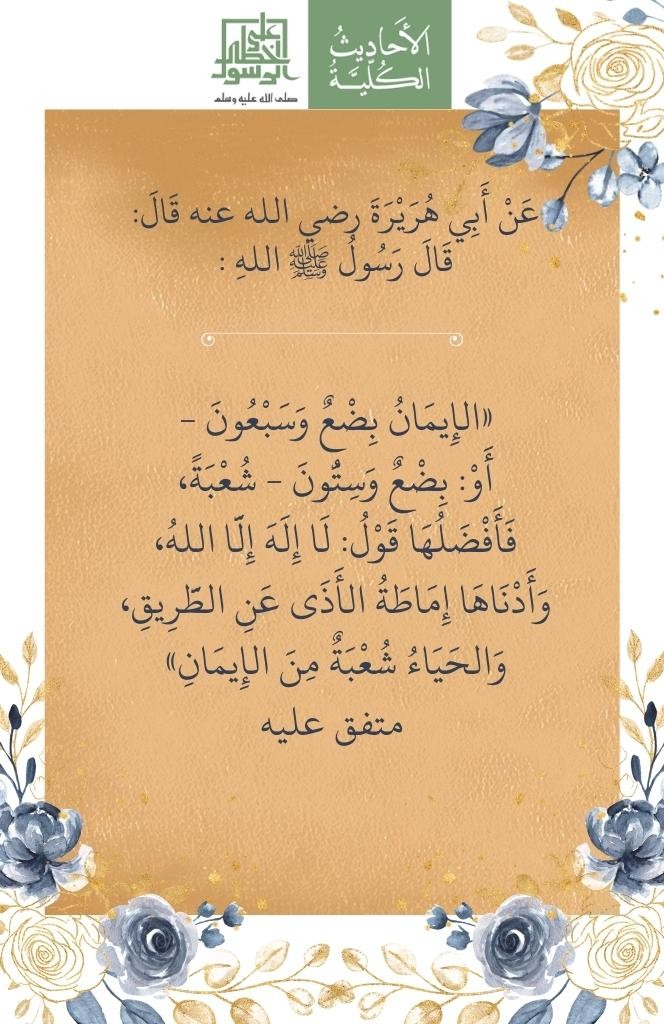 على خطى الرسول
صلى الله عليه وسلم
الأَحَادِيثُ
الكُلِّيَّةُ
عَنْ أَبِي هُرَيْرَةَ رضي الله عنه قَالَ:
قَالَ رَسُولُ ﷺ اللهِ :
«الإِيمَانُ بِضْعٌ وَسَبْعُونَ –
أَوْ: بِضْعٌ وَسِتُّونَ – شُعْبَةً،
فَأَفْضَلُهَا قَوْلُ: لَا إِلَهَ إِلَّا اللهُ،
وَأَدْنَاهَا إِمَاطَةُ الأَذَى عَنِ الطَّرِيقِ،
وَالحَيَاءُ شُعْبَةٌ مِنَ الإِيمَانِ»
متفق عليه